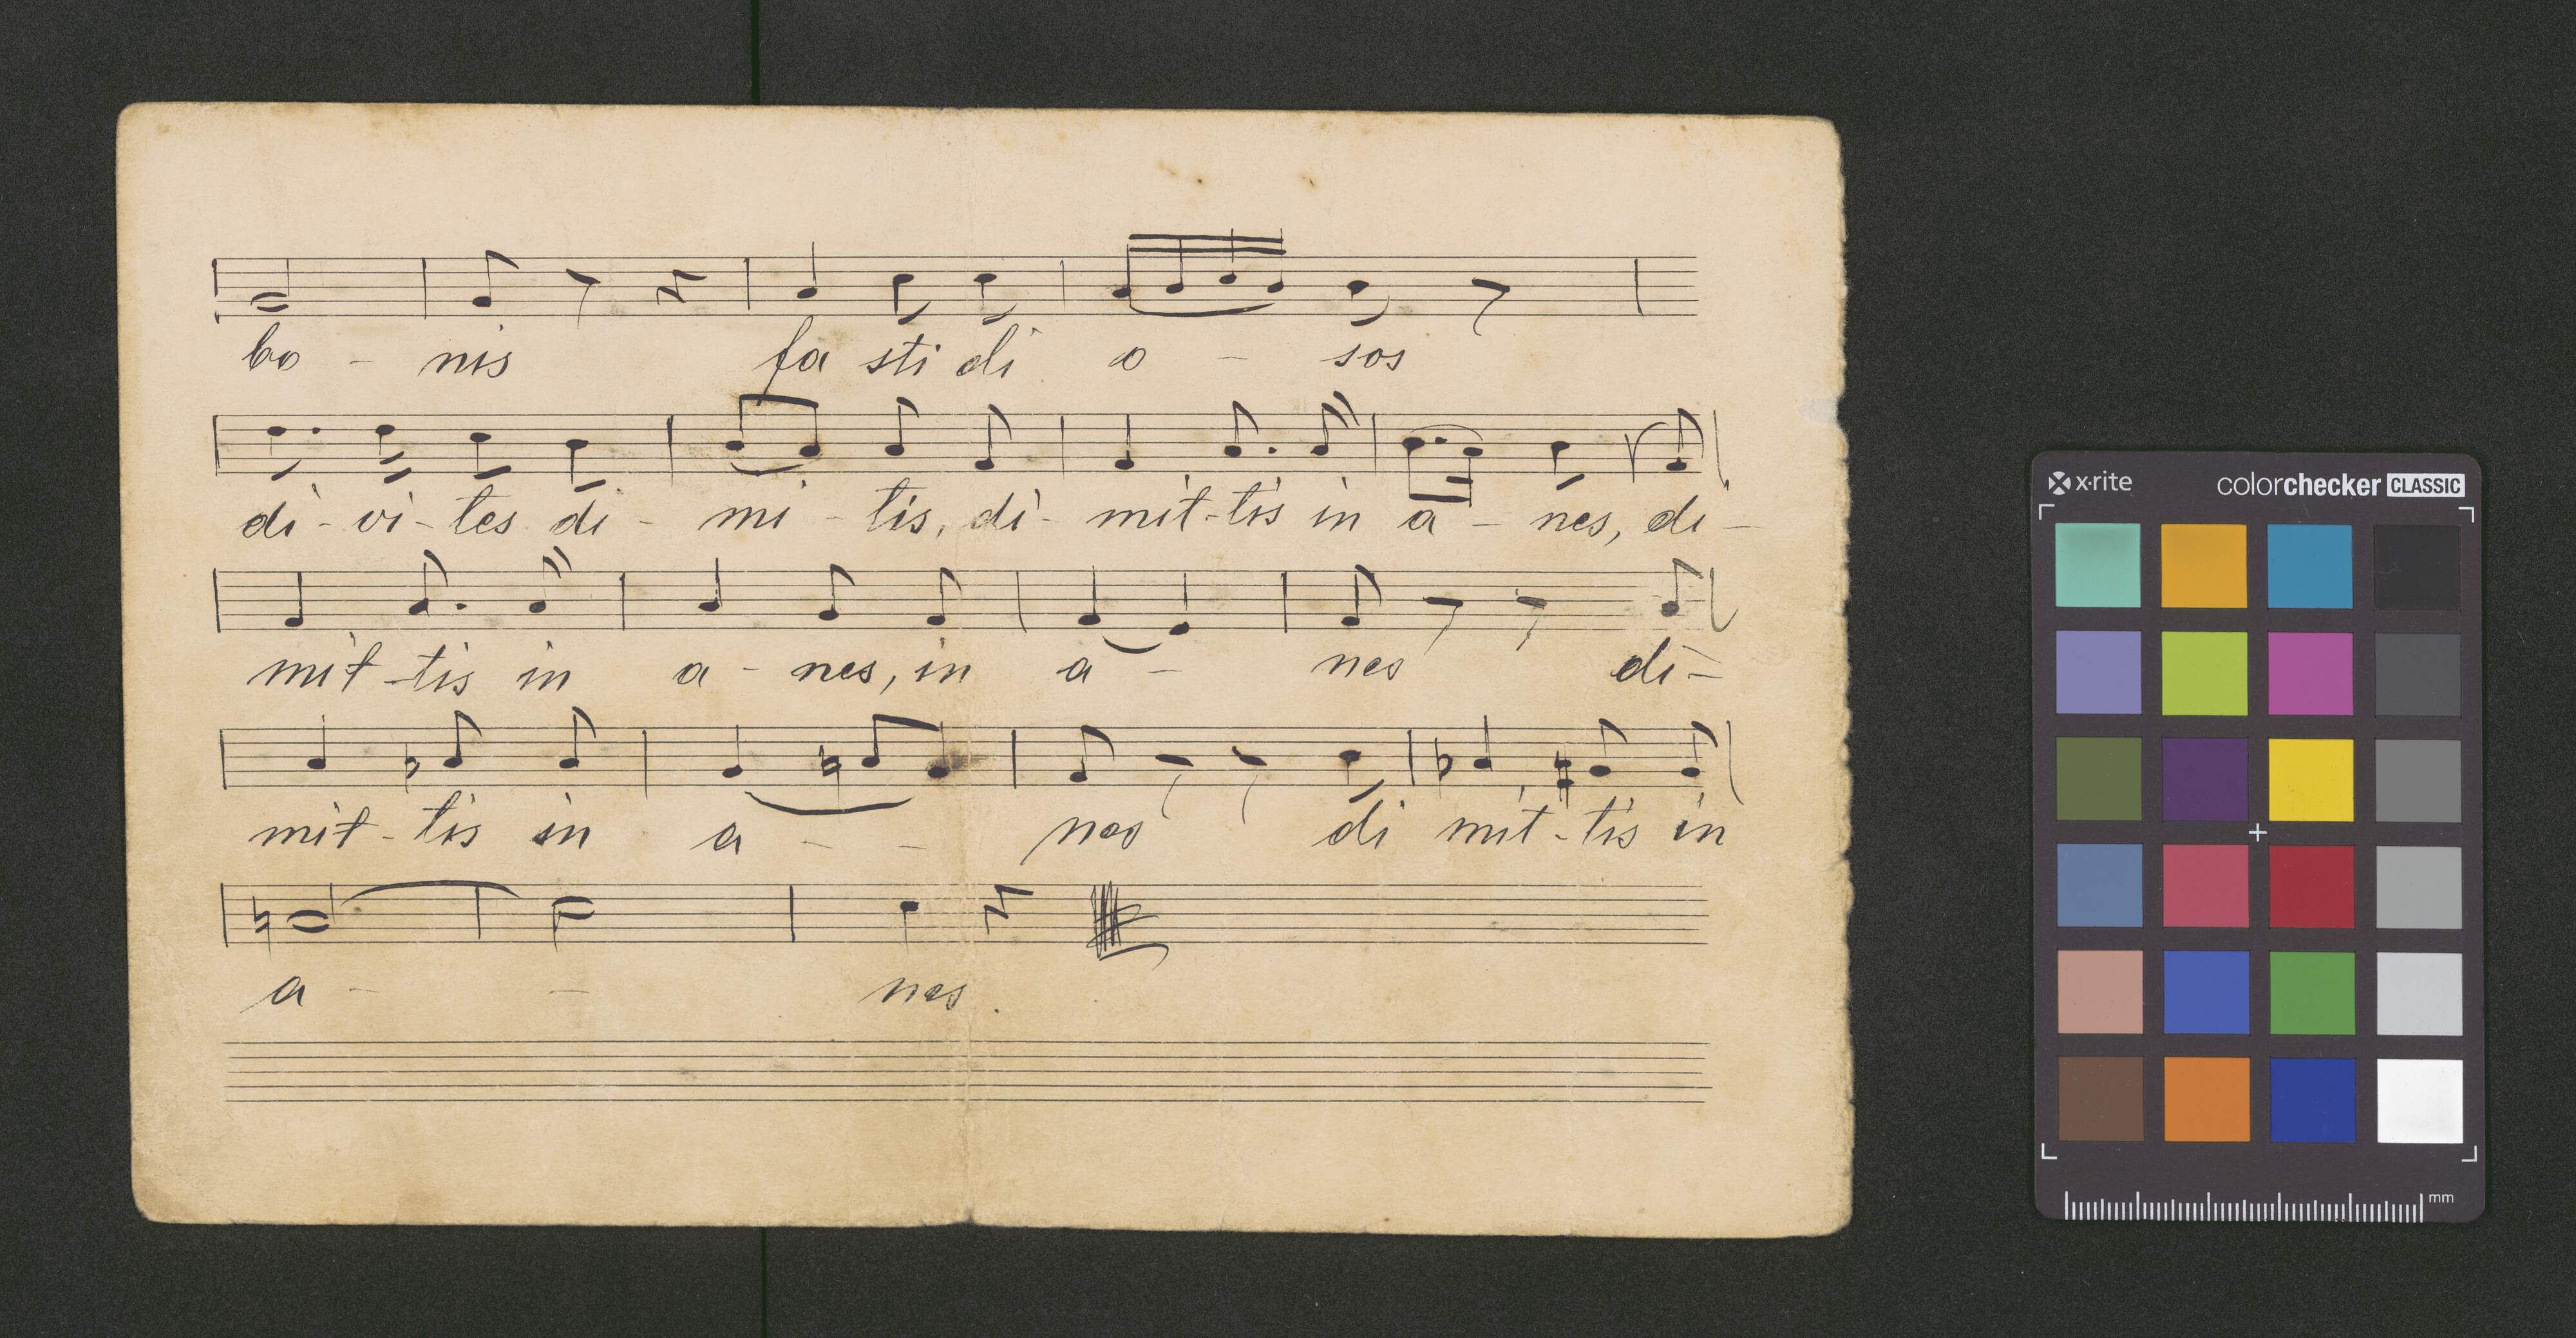 bo - nis fa sti di o - sos
di - vi - tes di - mi - tis, di - mit - tis in a - nes, di -
mit - tis in a - nes, in a - nes di -
mit - tis in a - - nes di mit - tis in
a - - nes.
x·rite colorchecker CLASSIC
mm